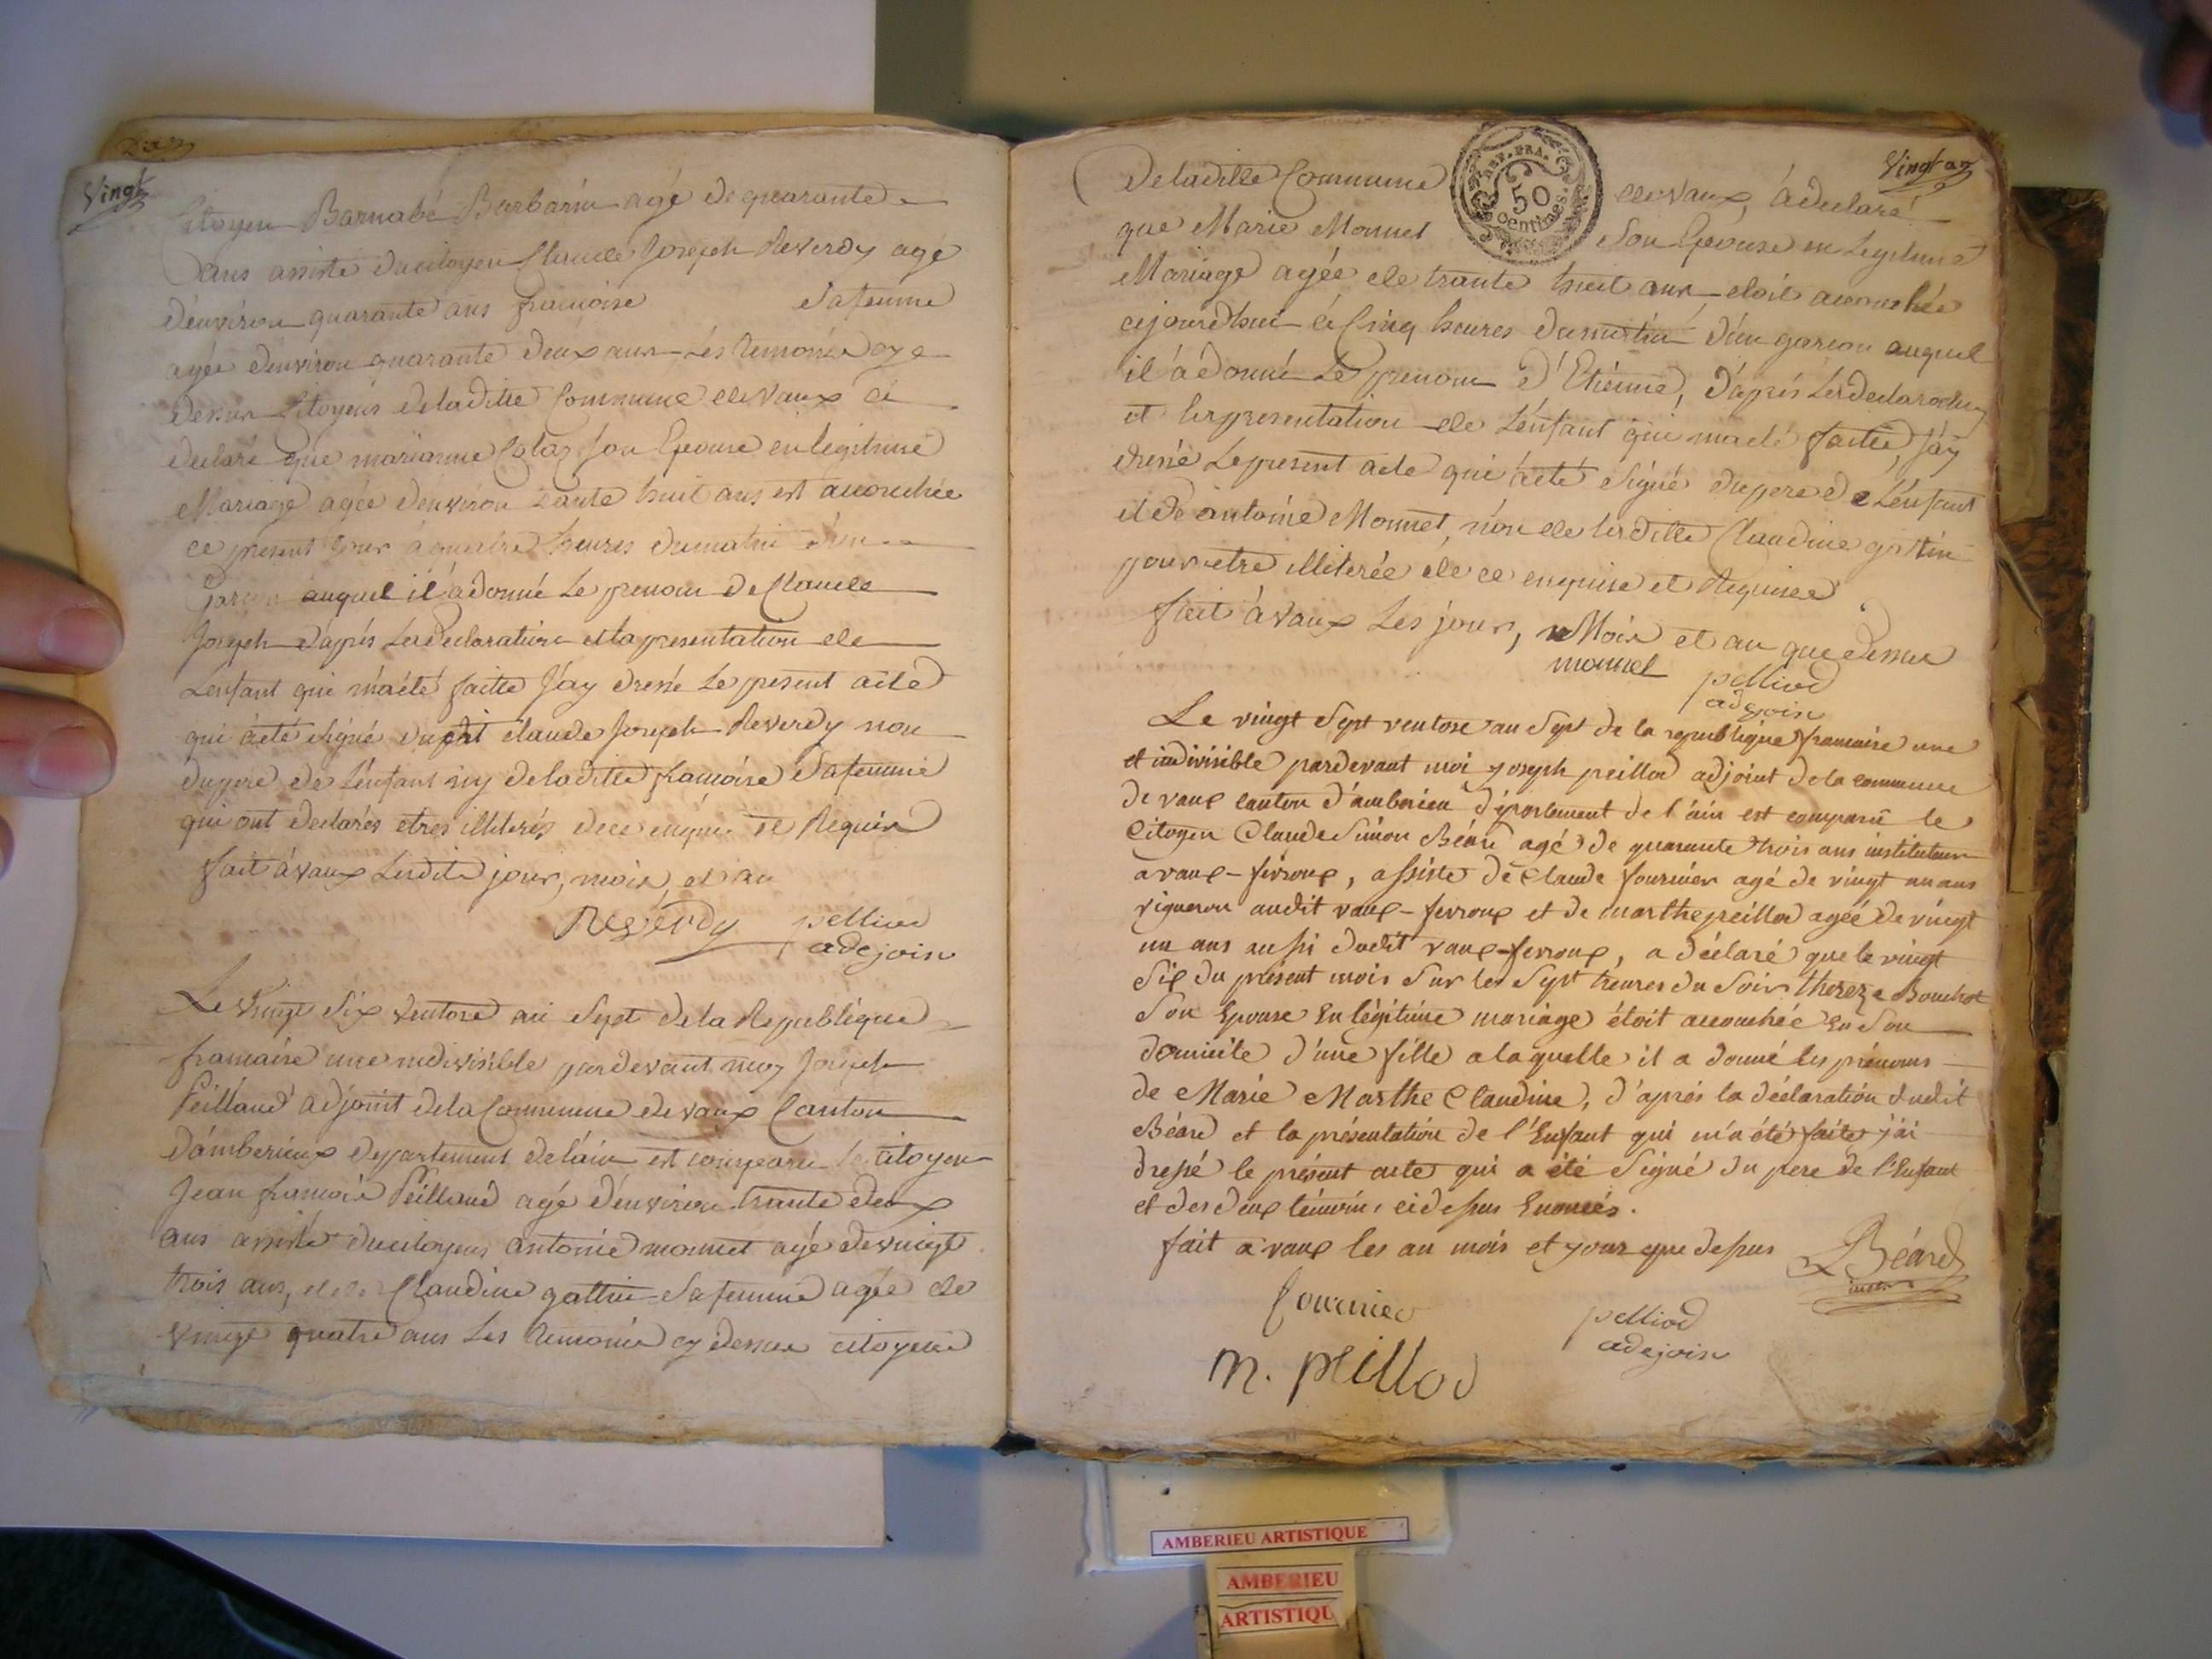 Vingt
Citoyen Barnabé Barbarin agé de quarante
ans assisté du citoyen Claude Joseph Reverdy agé
d'environ quarante ans françoise sa femme
agée d'environ quarante deux ans Les temoins cy
dessus Citoyens de laditte Commune de Vaux a
declaré que marianne son Epouse en legitime
Mariage agée d'environ trante huit ans est accouchée
ce present jour a quatre heures du matin d'un
Garçon auquel il a donné Le prenom de Claude
Joseph d'aprés La declaration et la presentation de
Lenfant qui m'a été faitte J'ay dressé Le present acte
qui a été signé dudit claude Joseph Reverdy non
du pere de L'enfant ny de laditte françoise Sa femme
qui ont declarés etres illiterés de ce enquis et Requis
fait à vaux Lesdits jour, mois, et an
Reverdy pelliod
adejoin
Le Vingt Six Ventose an Sept de la Republique
francaise une indivisible pardevant moy Joseph
Peilland adjoint de la Commune de vaux Canton
d'amberieux departement de lain est comparu le Citoyen
Jean francois Peilland agé d'environ trante deux
ans assisté du citoyens antoine monnet agé de vingt
trois ans, et de Claudine gattin Sa femme agée de
vingt quatre ans Les temoins cy dessus citoyens
Vingt un
De laditte Commune de Vaux, à declaré
REP. FRA.
50
centimes
que Marie Monnet Son Epouse en Legitime
Mariage agée de trante huit ans etoit accouchée
cejourdhui à Cinq heures du matin d'un garcon auquel
il à donné Le prenom d'Etienne, d'aprés La declaration
et la presentation de L'enfant qui ma eté faitte, J'ay
dressé Le present acte qui à eté signé du pere de L'enfant
et de antoine Monnet, non de laditte Claudine gattin
pour etre illiterée de ce enquise et Requise
fait à vaux Les jour, Mois et an que dessus
monnet pelliod
adejoin
Le vingt Sept ventose an Sept de la republique francaise une
et indivisible pardevant moi joseph peillod adjoint de la commune
de vaux canton d'amberieu département de l'ain est comparu le
Citoyen Claude Simon Béard agé de quarante trois ans instituteur
a vaux-fevroux, assisté de Claude fournier agé de vingt un ans
vigneron audit vaux-fevroux et de marthe peillod agéé de vingt
un ans aussi dudit vaux-fevroux, a déclaré que le vingt
Six du présent mois Sur les Sept heures du Soir thereze Bouchot
Son Epouse En légitime mariage étoit accouchée En Son
domicile d'une fille a laquelle il a donné les prénoms
de Marie Marthe Claudine, d'aprés la déclaration dudit
Béard et la présentation de l'Enfant qui m'a été faite j'ai
dressé le présent acte qui a été Signé du pere de l'Enfant
et des deux témoins ci dessus Enoncés.
fait a vaux les an mois et jour que dessus
Béard
fournier
pelliod
adejoin
m. peillod
AMBERIEU ARTISTIQUE
AMBERIEU
ARTISTIQU